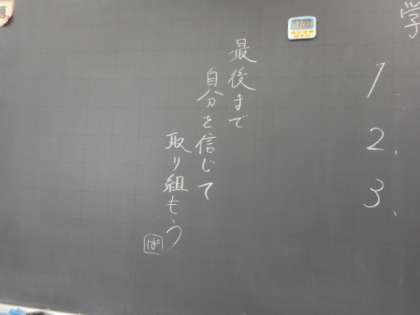 学
1
2、
3、
最後まで
自分を信じて
取り組もう